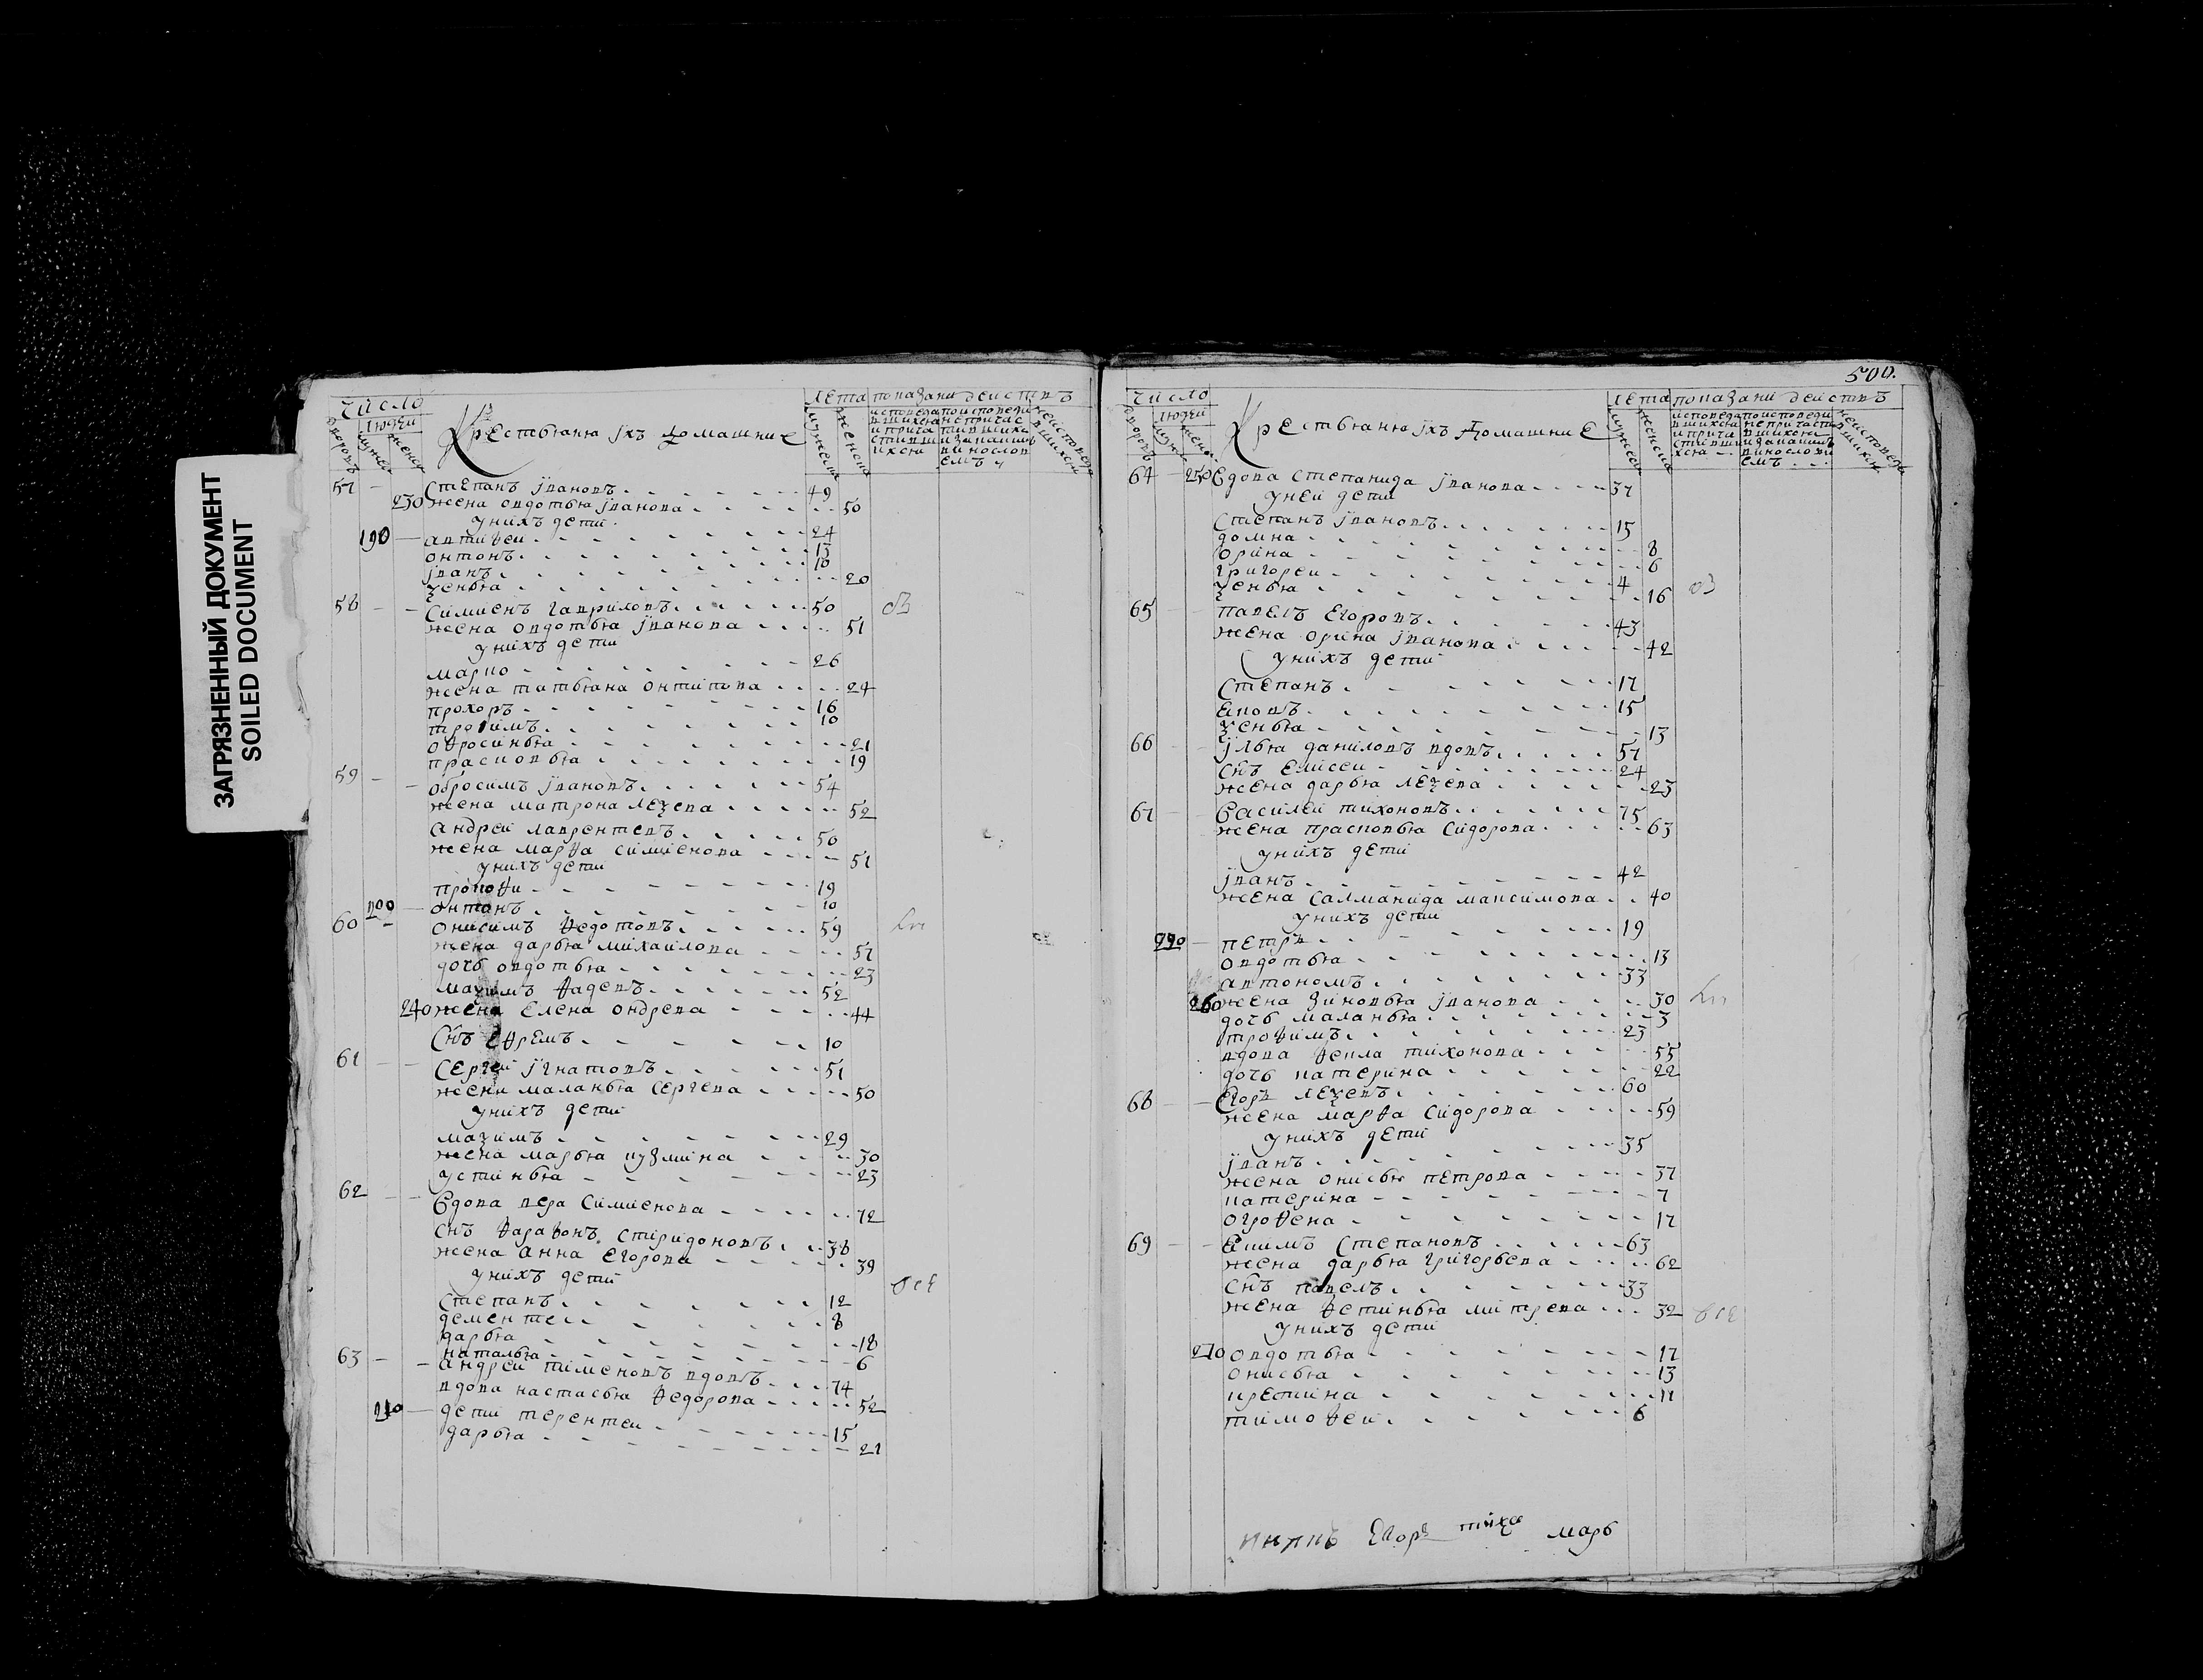 ЗАГРЯЗНЕННЫЙ ДОКУМЕНТ
SOILED DOCUMENT
число
людей
дворовъ
мужеска
женска
Крестьяня јхъ домашние
лета
мужеска
женска
показани действъ
исповеда
вшихся
и прича
стивши
ихся
поисповеди
непричас
тившихс
изакаимъ
винослов
емъ
неисповеда
вшихся
57 Степанъ јвановъ 49
230 жена овдотья јванова 50
унихъ дети
190 автифеи 24
онтонъ 13
јванъ 10
зенвья 20
58 Симиенъ гавриловъ 50
жена овдотья јванова 51
унихъ дети
марко 26
жена татьяна онтипова 24
прохоръ 16
трофимъ 10
офросинья 21
прасковья 19
59 обросимъ јвановъ 54
жена матрона лезева 52
андреи лаврентевъ 50
жена марфа симиенова 51
унихъ дети
прокофи 19
200 онтонъ 10
60 онисимъ федотовъ 59
жена дарья михаилова 57
дочь овдотья 23
мазимъ фадевъ 52
240 жена Елена ондрева 44
Снъ Ефремъ 10
61 Сергеи јгнатовъ 51
жена маланья Сергева 50
унихъ дети
мазимъ 29
жена марья кузмина 30
устинья 23
62 Вдова вера Симиенова 72
Снъ фарафонъ спиридоновъ 38
жена анна Егорова 39
унихъ дети
Степанъ 12
дементеи 8
дарья 18
наталья 6
63 андреи пименовъ вдовъ 74
вдова настасья федорова 52
210 дети терентеи 15
дарья 21
500.
число
людей
дворовъ
мужес
женс
Крестьяня јхъ домашние
лета
мужеска
женска
показани действъ
исповеда
вшихся
и прича
стивши
хся
поисповеди
непричасти
вшихся
изакаимъ
винослови
емъ
неисповеда
вшихся
64 250 Вдова Степанида јванова 37
уней дети
Степанъ јвановъ 15
домна 8
орина 6
григореи 4
зенвья 16
65 павелъ Егоровъ 43
жена орина јванова 42
унихъ дети
Степанъ 17
яковъ 15
зенвья 13
66 јлья даниловъ вдовъ 57
Снъ Елисеи 24
жена дарья лезева 23
67 Василеи тихоновъ 75
жена прасковья Сидорова 63
унихъ дети
јванъ 42
жена Салманида максимова 40
унихъ дети
220 петръ 19
овдотья 13
автономъ 33
260 жена зиновья јванова 30
дочь маланья 3
трофимъ 23
вдова фекла тихонова 55
дочь катерина 22
68 Егоръ лезевъ 60
жена марфа Сидорова 59
унихъ дети
јванъ 35
жена онисья петрова 37
катерина 7
огрофена 17
69 якимъ Степановъ 63
жена дарья григорьева 62
Снъ павелъ 33
жена фетинья митрева 32
унихъ дети
270 овдотья 17
онисья 13
крестина 11
тимофеи 6
Егоръ
марь